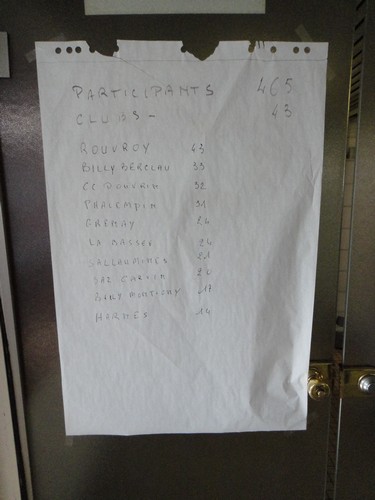 PARTICIPANTS 465
CLUBS - 43
ROUVROY 43
BILLY BERCLAU 33
CC DOUVRIN 32
PHALEMPIN 31
GRENAY
LA BASSEE 24
SALLAUMINES 21
20
BENY MONTIGNY 17
HARNES 14